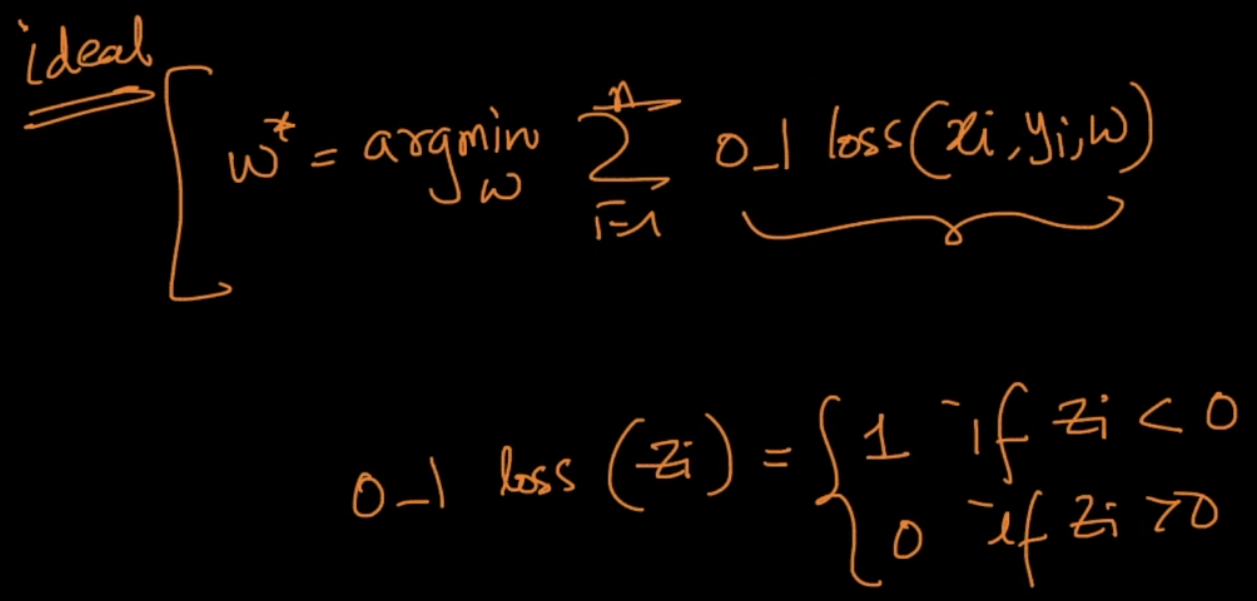 ideal
w* = argmin_w ∑_{i=1}^{n} 0_1 loss(xi, yi, w)
0_1 loss (zi) = { 1 if zi < 0
0 if zi > 0